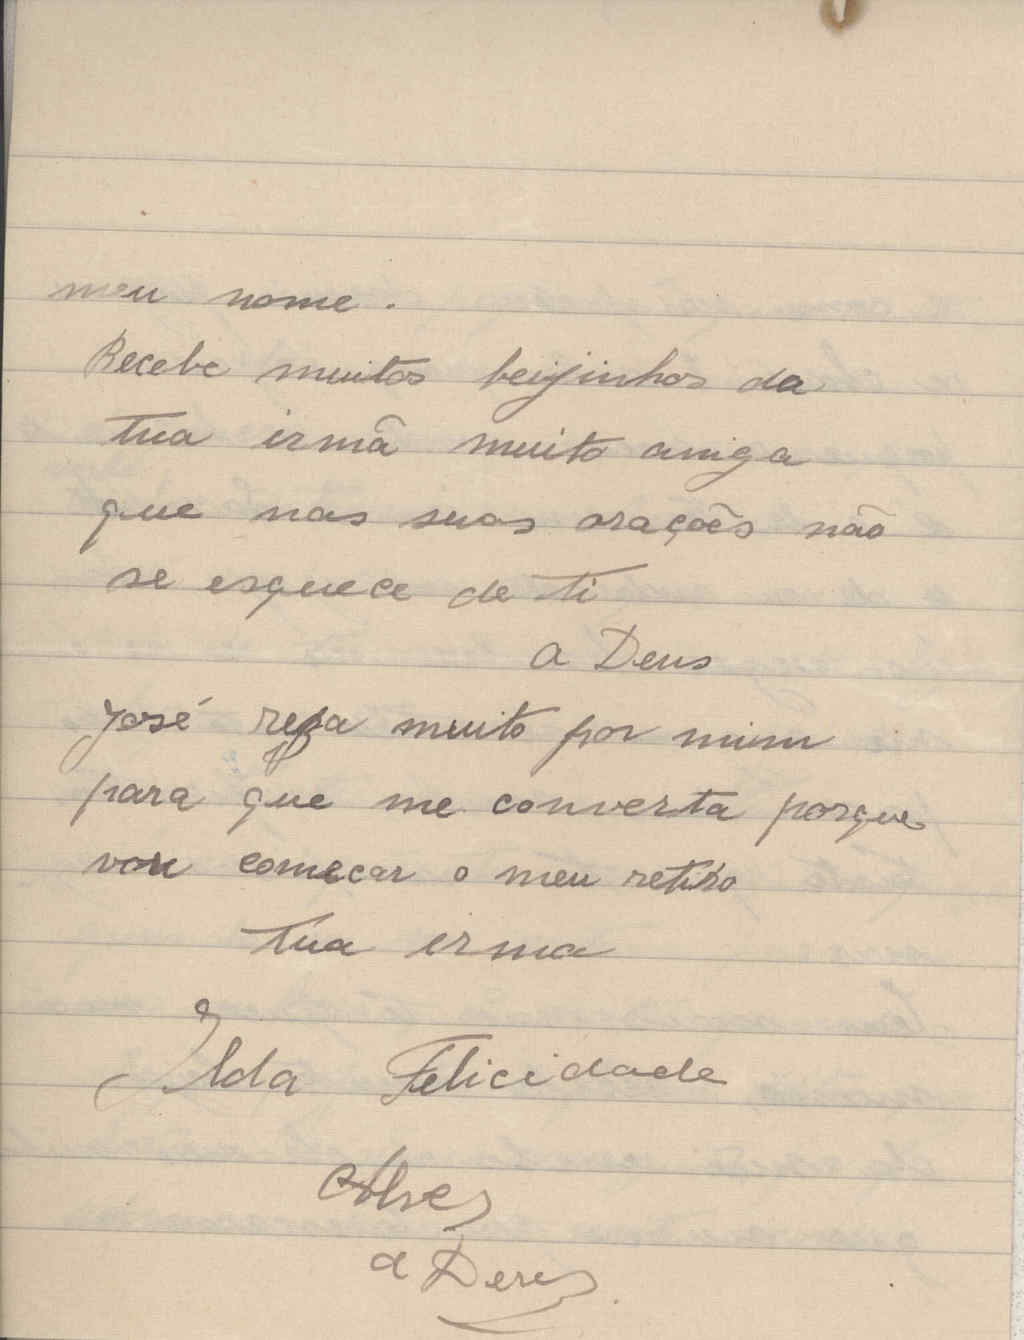 meu nome.
Recebe muitos beijinhos da
tua irmã muito amiga
que nas suas orações não
se esquece de ti
a Deus
José reza muito por mim
para que me converta porque
vou começar o meu retiro
tua irma
Ilda Felicidade
Alves
a Deus